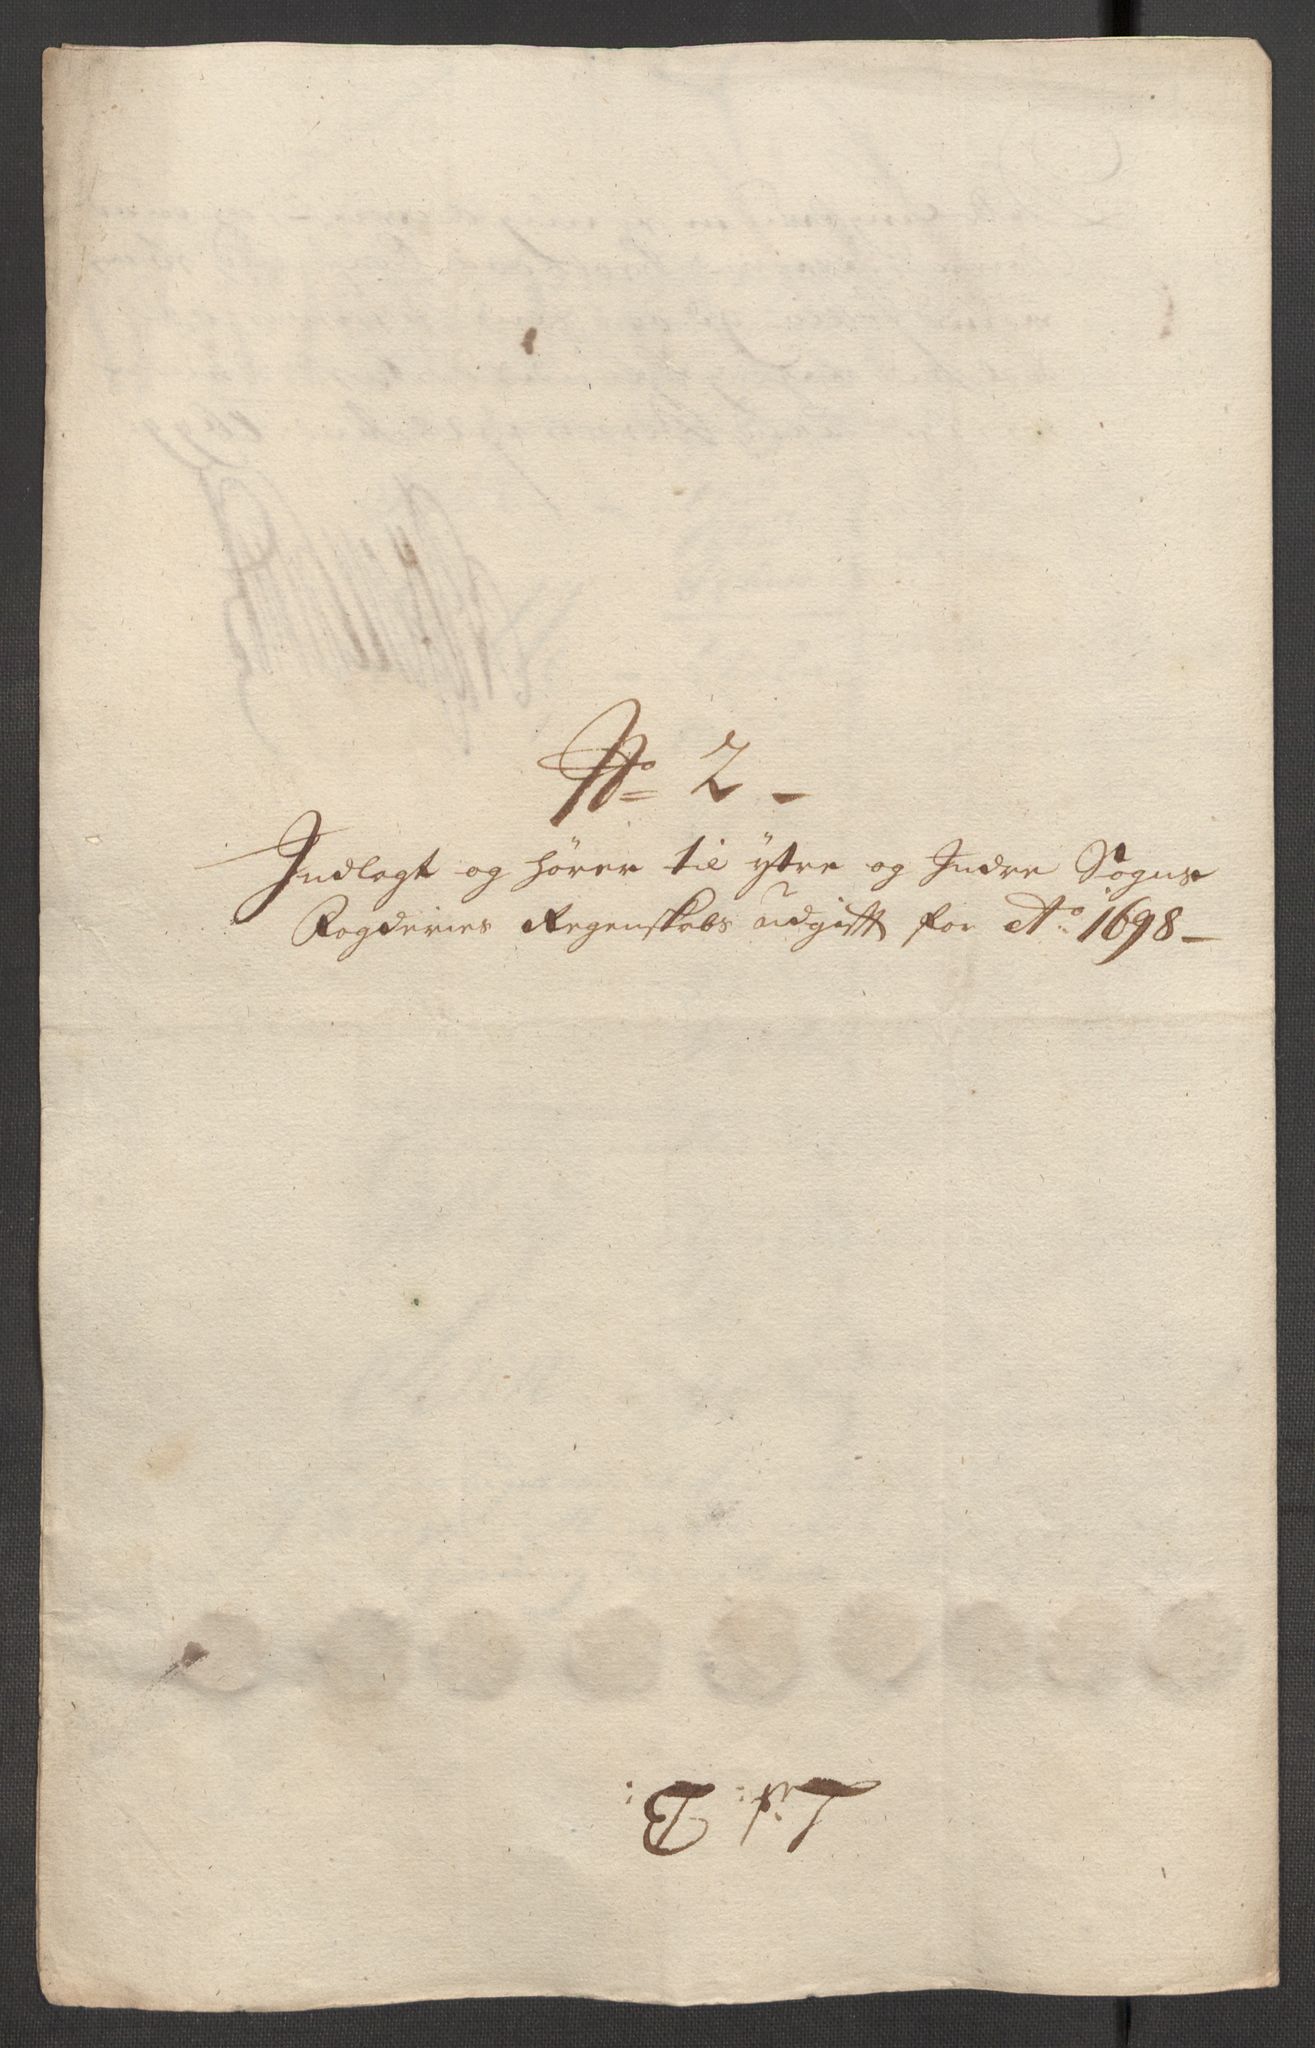 No 2 -
Indlagt og hører til ÿtre og Indre Sogns
Fogderies Regenskabs udgift for Ao 1698 -
Lit: B: